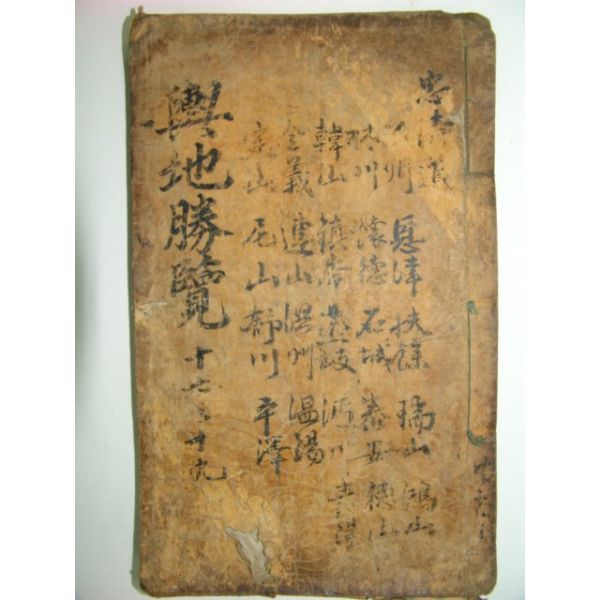 忠清道
公州 恩津 扶餘 瑞山 鴻山
林川 懷德 石城 泰安 德山
韓山 鎮岑 燕岐 沔川 青陽
全義 連山 洪州 溫陽
定山 尼山 舒川 平澤
輿地勝覽 十七之十九